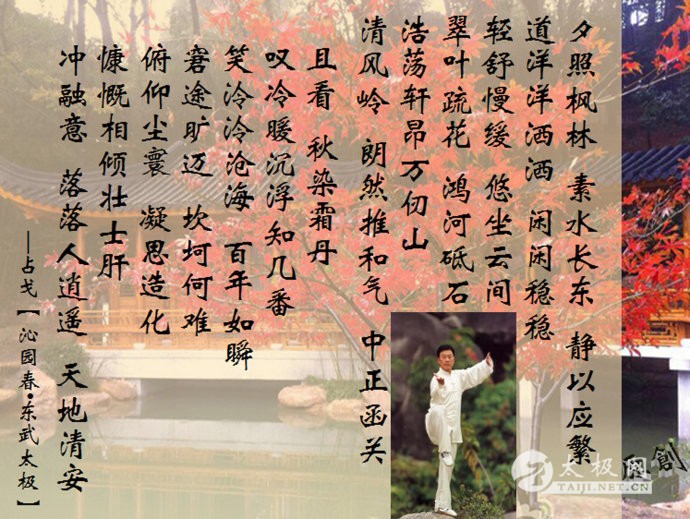 夕照枫林 素水长东 静以应繁
道洋洋洒洒 闲闲稳稳
轻舒慢缓 悠坐云间
翠叶疏花 鸿河砥石
浩荡轩昂万仞山
清风岭 朗然推和气 中正函关
且看 秋染霜丹
叹冷暖沉浮知几番
笑泠泠沧海 百年如瞬
窘途旷迈 坎坷何难
俯仰尘寰 凝思造化
慷慨相倾壮士肝
冲融意 落落人逍遥 天地清安
—占戈【沁园春·东武太极】
原創
太极网
TAIJI.NET.CN